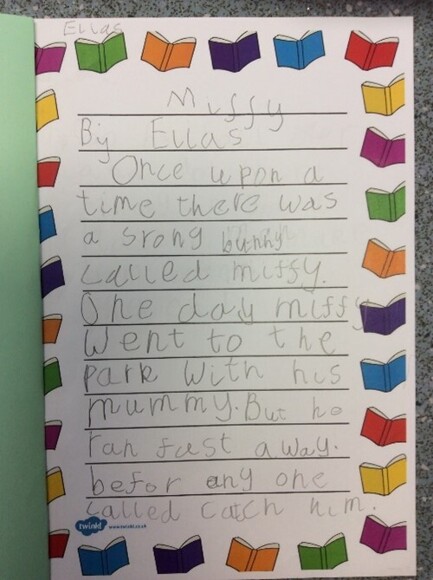 Ellas
Miffy
By Ellas
Once upon a
time there was
a srong bunny
called miffy.
One day miffy
Went to the
park With his
mummy. But he
ran fast away.
befor any one
called catch him.
twinkl www.twinkl.co.uk